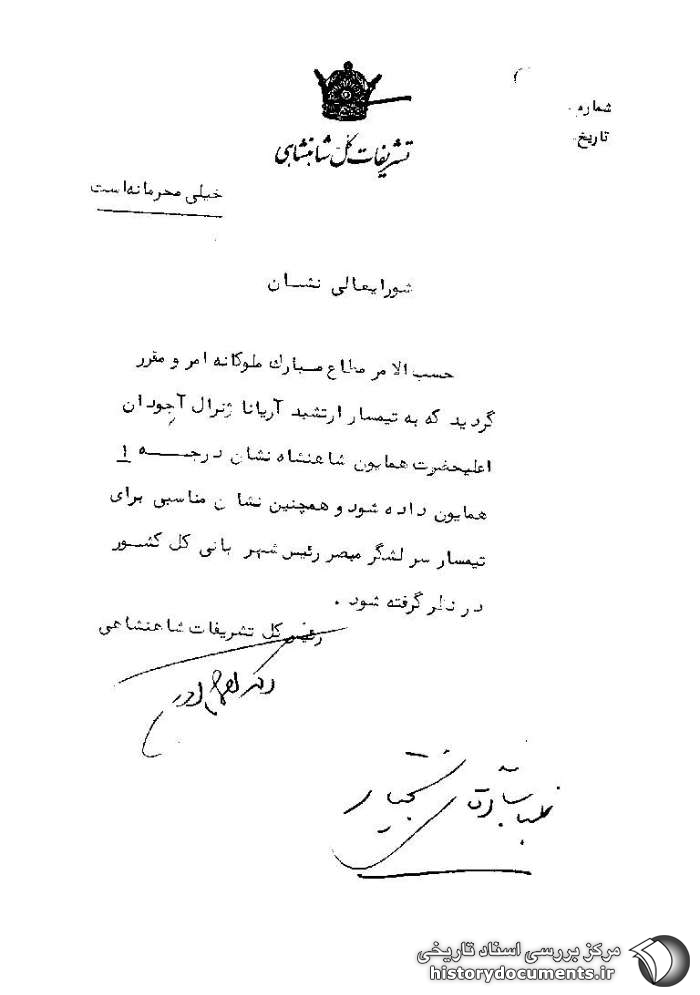 شماره
تاریخ
تشریفات کل شاهنشاهی
خیلی محرمانه است
شورایعالی نشان
حسب الامر مطاع مبارك ملوکانه امر و مقرر
گردید که به تیمسار ارتشبد آریانا ژنرال آجودان
اعلیحضرت همایون شاهنشاه نشان درجـــه ۱
همایون داده شود و همچنین نشان مناسبی برای
تیمسار سرلشگر مبصر رئیس شهربانی کل کشور
در نظر گرفته شود .
رئیس کل تشریفات شاهنشاهی
مرکز بررسی اسناد تاریخی
historydocuments.ir